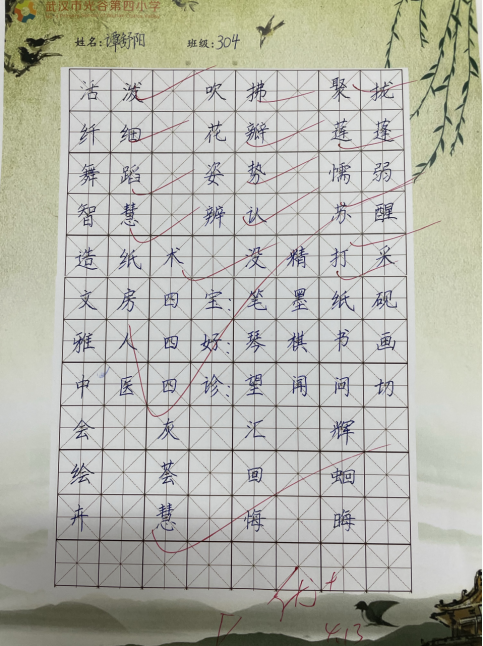 武汉市光谷第四小学
姓名:谭舒阳 班级:304
活泼 吹拂 聚拢
纤细 花瓣 莲蓬
舞蹈 姿势 懦弱
智慧 辨认 苏醒
造纸术 没精打采
文房四宝:笔墨纸砚
雅人四好:琴棋书画
中医四诊:望闻问切
会 灰 汇 辉
绘 荟 回 蛔
卉 慧 悔 晦
优+
4.13